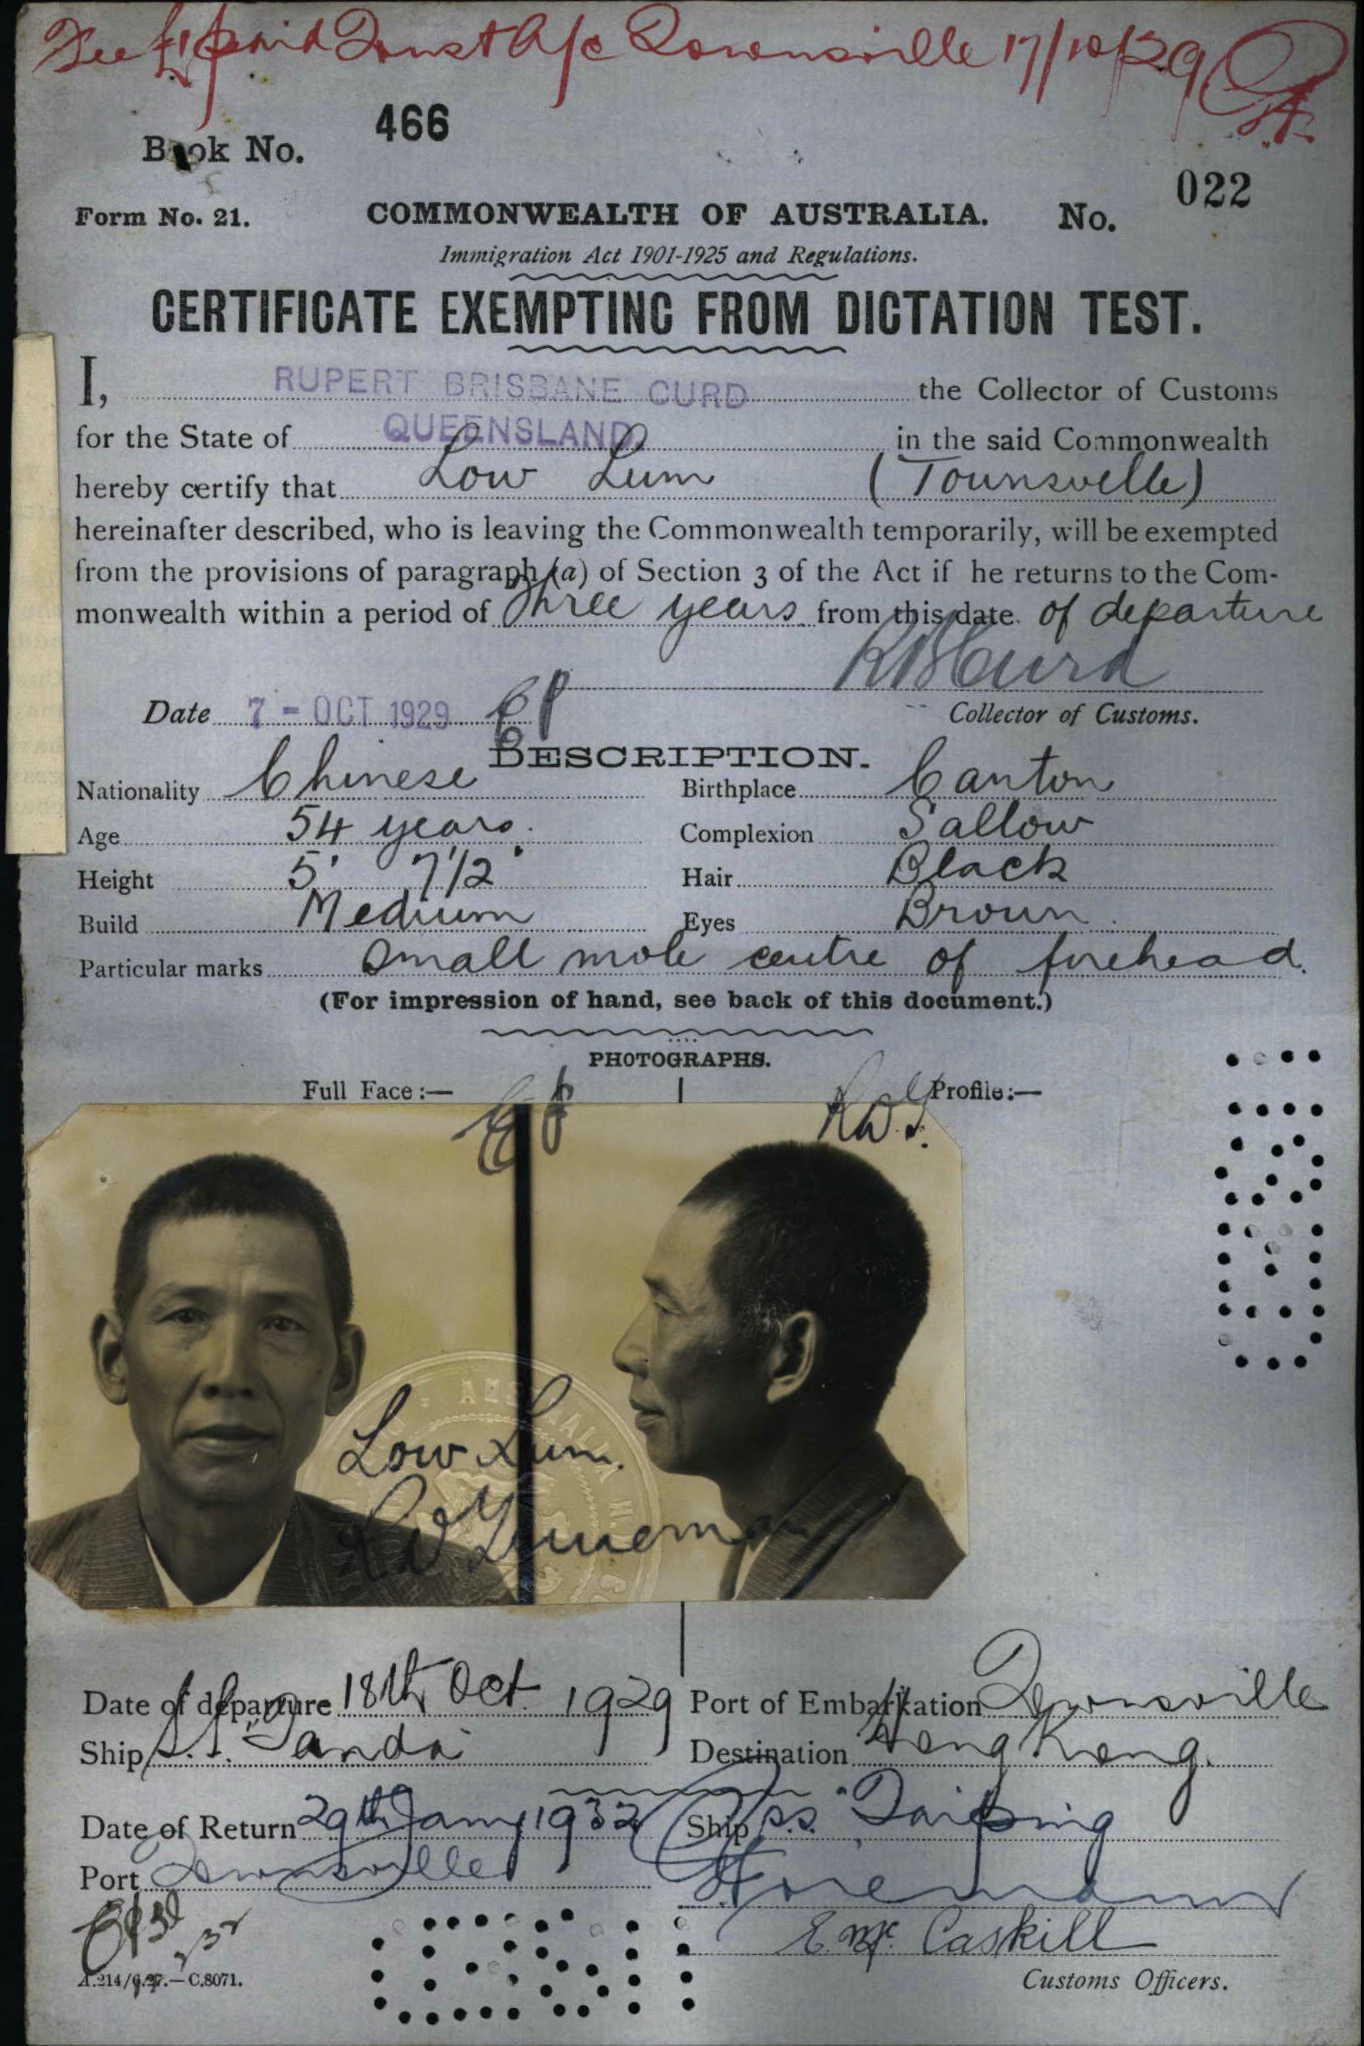 Fee £1 paid Trust A/c Townsville 17/10/29
Book No. 466
Form No. 21. COMMONWEALTH OF AUSTRALIA. No. 022
Immigration Act 1901-1925 and Regulations.
CERTIFICATE EXEMPTING FROM DICTATION TEST.
I, RUPERT BRISBANE CURD the Collector of Customs
for the State of QUEENSLAND. in the said Commonwealth
hereby certify that Low Lum (Townsville)
hereinafter described, who is leaving the Commonwealth temporarily, will be exempted
from the provisions of paragraph (a) of Section 3 of the Act if he returns to the Com-
monwealth within a period of Three years from this date of departure
R B Curd
Date 7 - OCT 1929 Collector of Customs.
DESCRIPTION.
Nationality Chinese Birthplace Canton
Age 54 years. Complexion Sallow
Height 5' 7 1/2" Hair Black
Build Medium Eyes Brown.
Particular marks small mole centre of forehead.
(For impression of hand, see back of this document.)
PHOTOGRAPHS.
Full Face:— Profile:—
Low Lum.
Date of departure 18th Oct. 1929 Port of Embarkation Townsville
Ship S.S. Tanda Destination Hong Kong.
Date of Return 29th Jany 1932 Ship S.S. "Taiping
Port Townsville
E. Mc Caskill
A.214/6.27.—C.8071. Customs Officers.